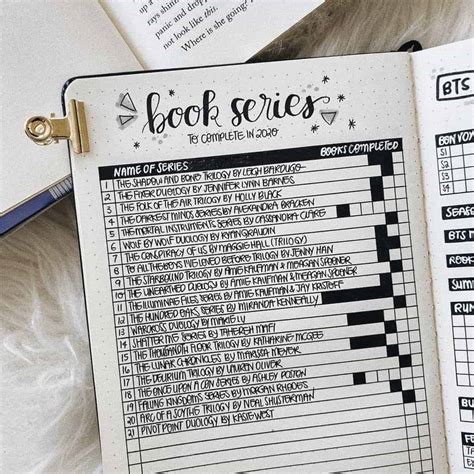 rays shining
panic and drop
not over this.
Where is she going?
book series
TO COMPLETE IN 2020
NAME OF SERIES BOOKS COMPLETED
1 THE SHADOW AND BONE TRILOGY BY LEIGH BARDUGO
2 THE FIXER DUOLOGY BY JENNIFER LYNN BARNES
3 THE FOLK OF THE AIR TRILOGY BY HOLLY BLACK
4 THE DARKEST MINDS SERIES BY ALEXANDRA BRACKEN
5 THE MORTAL INSTRUMENTS SERIES BY CASSANDRA CLARE
6 WOLF BY WOLF DUOLOGY BY RYAN GRAUDIN
7 THE CONSPIRACY OF US BY MAGGIE HALL (TRILOGY)
8 TO ALL THE BOYS I'VE LOVED BEFORE TRILOGY BY JENNY HAN
9 THE STARBOUND TRILOGY BY AMIE KAUFMAN & MEAGAN SPOONER
10 THE UNEARTHED DUOLOGY BY AMIE KAUFMAN & MEAGAN SPOONER
11 THE ILLUMINAE FILES SERIES BY AMIE KAUFMAN & JAY KRISTOFF
12 THE HUNDRED OAKS SERIES BY MIRANDA KENNEALLY
13 WARCROSS DUOLOGY BY MARIE LU
14 SHATTER ME SERIES BY TAHEREH MAFI
15 THE THOUSANDTH FLOOR TRILOGY BY KATHARINE MCGEE
16 THE LUNAR CHRONICLES BY MARISSA MEYER
17 THE DELIRIUM TRILOGY BY LAUREN OLIVER
18 THE ONCE UPON A CON SERIES BY ASHLEY POSTON
19 FALLING KINGDOMS SERIES BY MORGAN RHODES
20 ARC OF A SCYTHE TRILOGY BY NEAL SHUSTERMAN
21 PIVOT POINT DUOLOGY BY KASIE WEST
BTS
BON VOY
S1
S2
S3
S4
BTS
RU
SUM